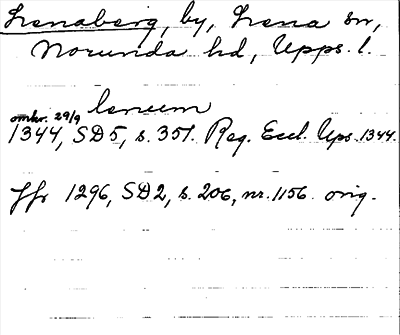 Lenaberg, by, Lena sn,
Norunda hd, Upps. l.
leneum
omkr. 29/9
1344, SD5, s. 351. Reg. Eccl. Ups. 1344.
jfr 1296, SD2, s. 206, nr. 1156. orig.